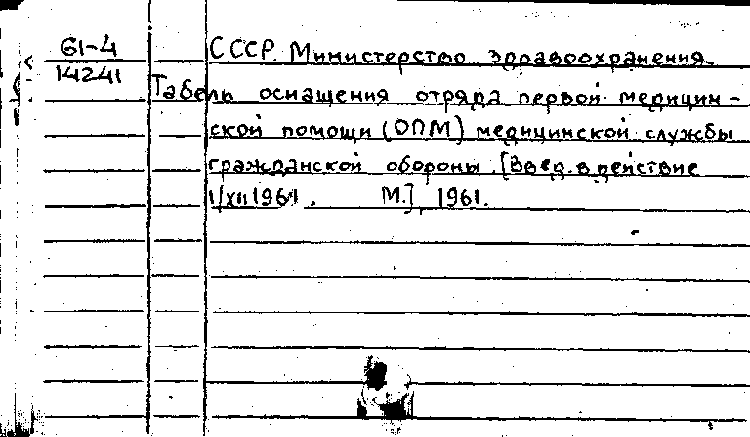 61-4
14241
СССР. Министерство здравоохранения
Табель оснащения отряда первой медицин-
ской помощи (ОПМ) медицинской службы
гражданской обороны. [Введ. в действие
1/XII 1961. М.], 1961.